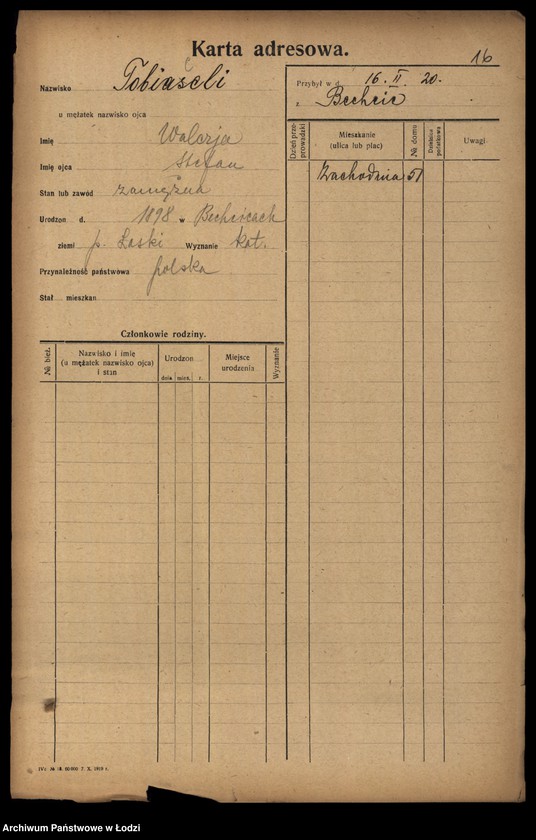 Karta adresowa.
16
Nazwisko Tobiaseli
u mężatek nazwisko ojca
Imię Walerja
Imię ojca Stefan
Stan lub zawód zamężna
Urodzon d. 1898 w Bechcicach
ziemi p. Łaski Wyznanie kat.
Przynależność państwowa polska
Stał mieszkan
Przybył w d. 16. II. 20.
z Bechcic
Dzień przeprowadzki
Mieszkanie (ulica lub plac)
№ domu
Dzielnica podatkowa
Uwagi
Zachodnia 51
Członkowie rodziny.
№ bież.
Nazwisko i imię
(u mężatek nazwisko ojca)
i stan
Urodzon
dnia mies. r.
Miejsce
urodzenia
Wyznanie
7. X. 1919 r.
Archiwum Państwowe w Łodzi